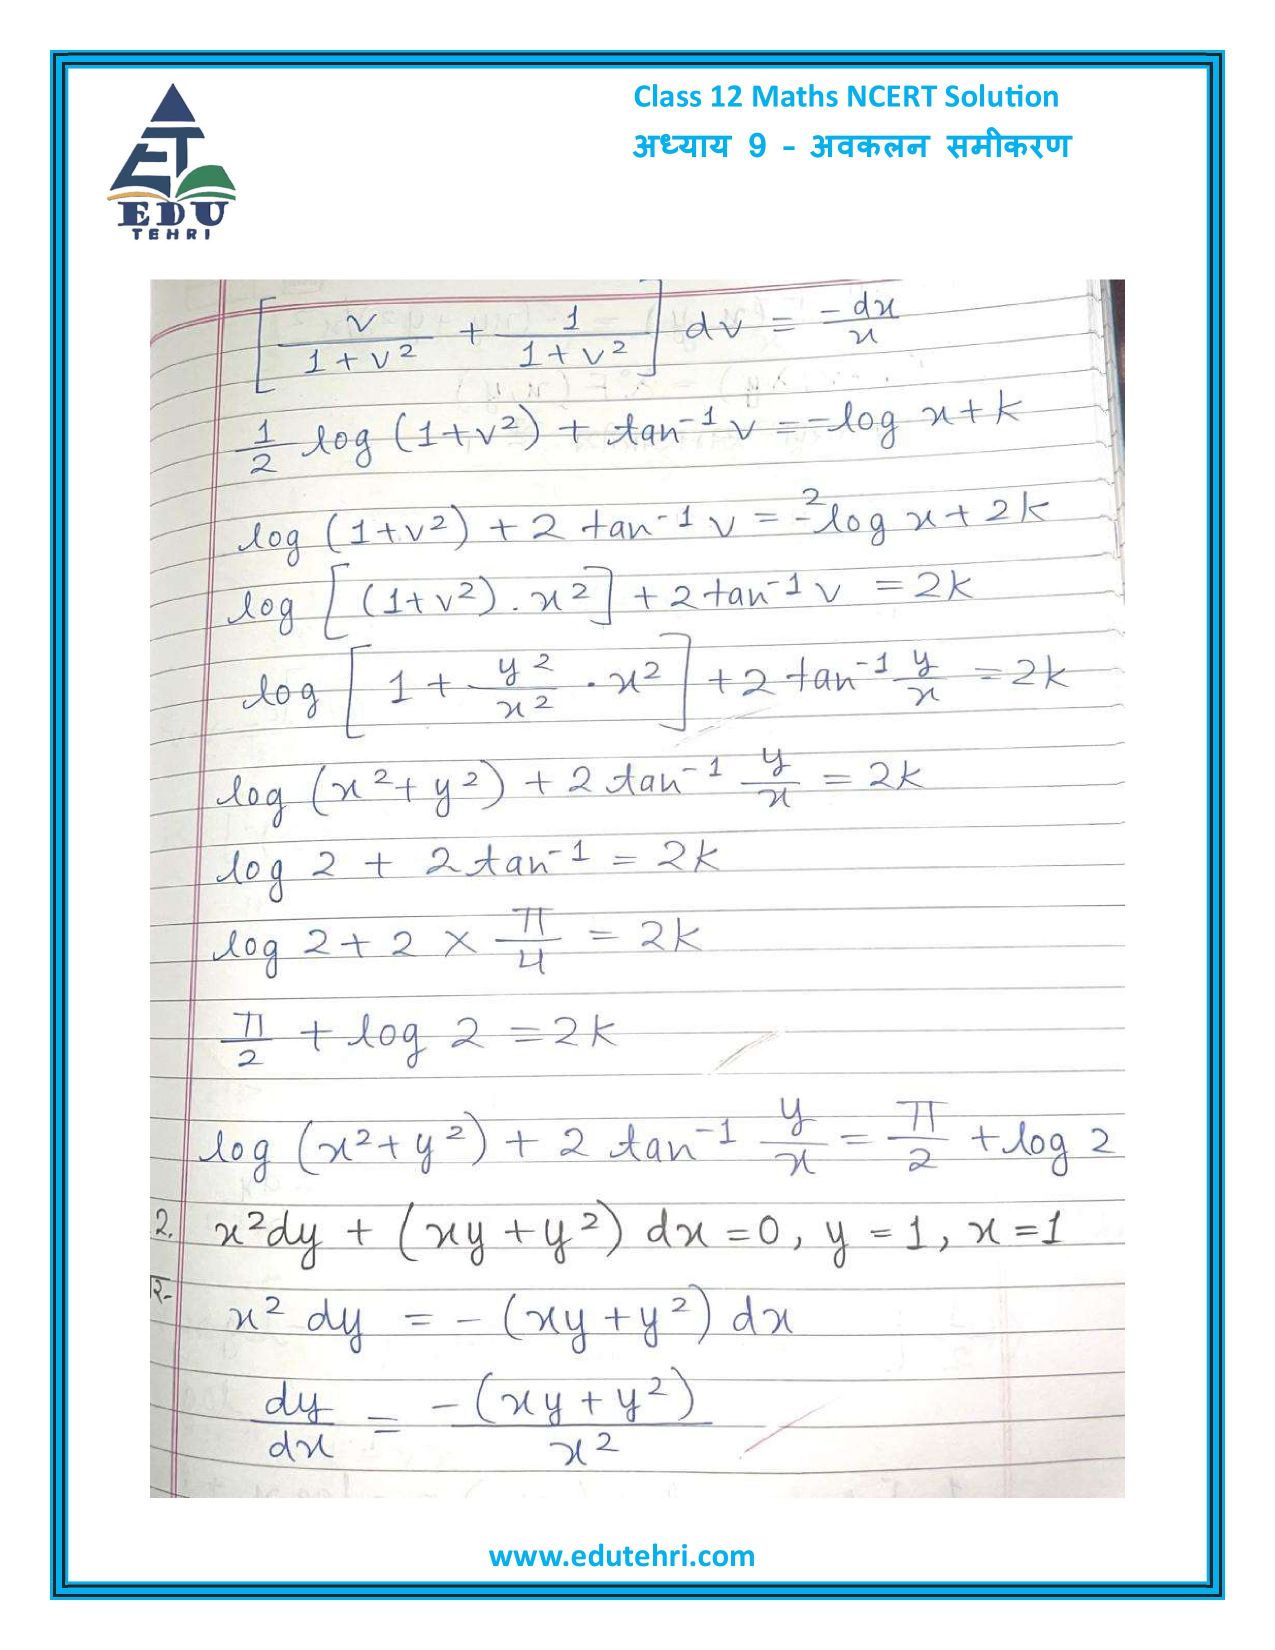 Class 12 Maths NCERT Solution
अध्याय 9 - अवकलन समीकरण
EDU
TEHRI
[v/(1+v²) + 1/(1+v²)] dv = -dx/x
1/2 log (1+v²) + tan⁻¹ v = -log x + k
log (1+v²) + 2 tan⁻¹ v = -2 log x + 2k
log [(1+v²) . x²] + 2 tan⁻¹ v = 2k
log [1 + y²/x² . x²] + 2 tan⁻¹ y/x = 2k
log (x² + y²) + 2 tan⁻¹ y/x = 2k
log 2 + 2 tan⁻¹ = 2k
log 2 + 2 × π/4 = 2k
π/2 + log 2 = 2k
log (x² + y²) + 2 tan⁻¹ y/x = π/2 + log 2
2. x²dy + (xy + y²) dx = 0, y = 1, x = 1
x² dy = - (xy + y²) dx
dy/dx = -(xy + y²)/x²
www.edutehri.com